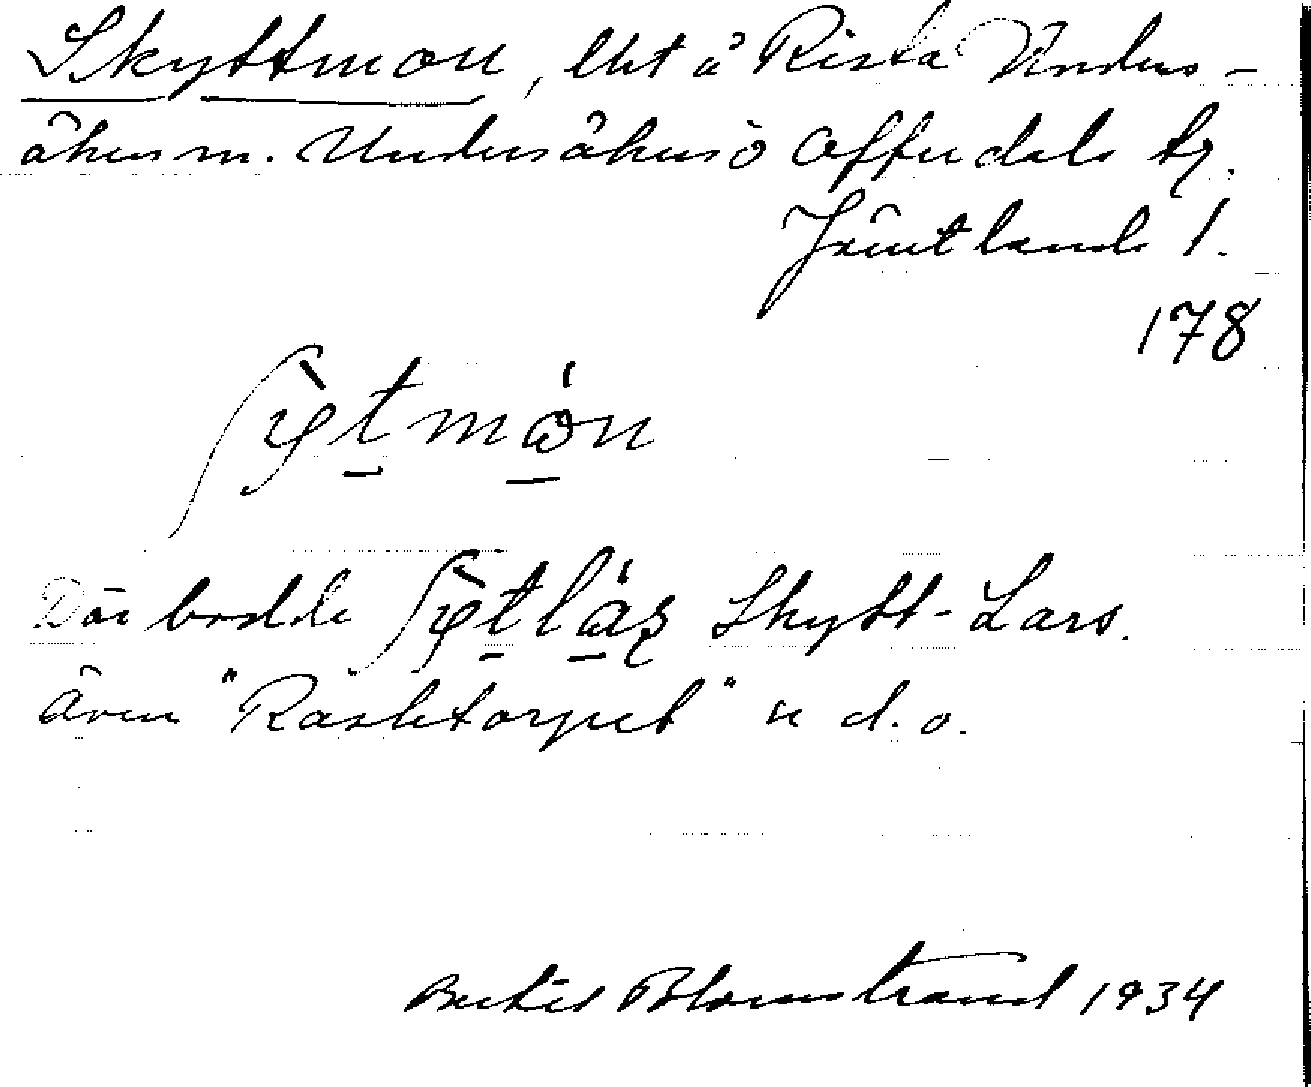 Skyttmon, lht å Rista Unders-
åkers m. Undersåkers o Offerdals tg.
Jämtlands l.
178
ʃỳt mȯ́n
Där bodde ʃỳt láṣ Skytt-Lars.
även "Raskitorpet" u d. o.
Bertil Blomstrand 1934